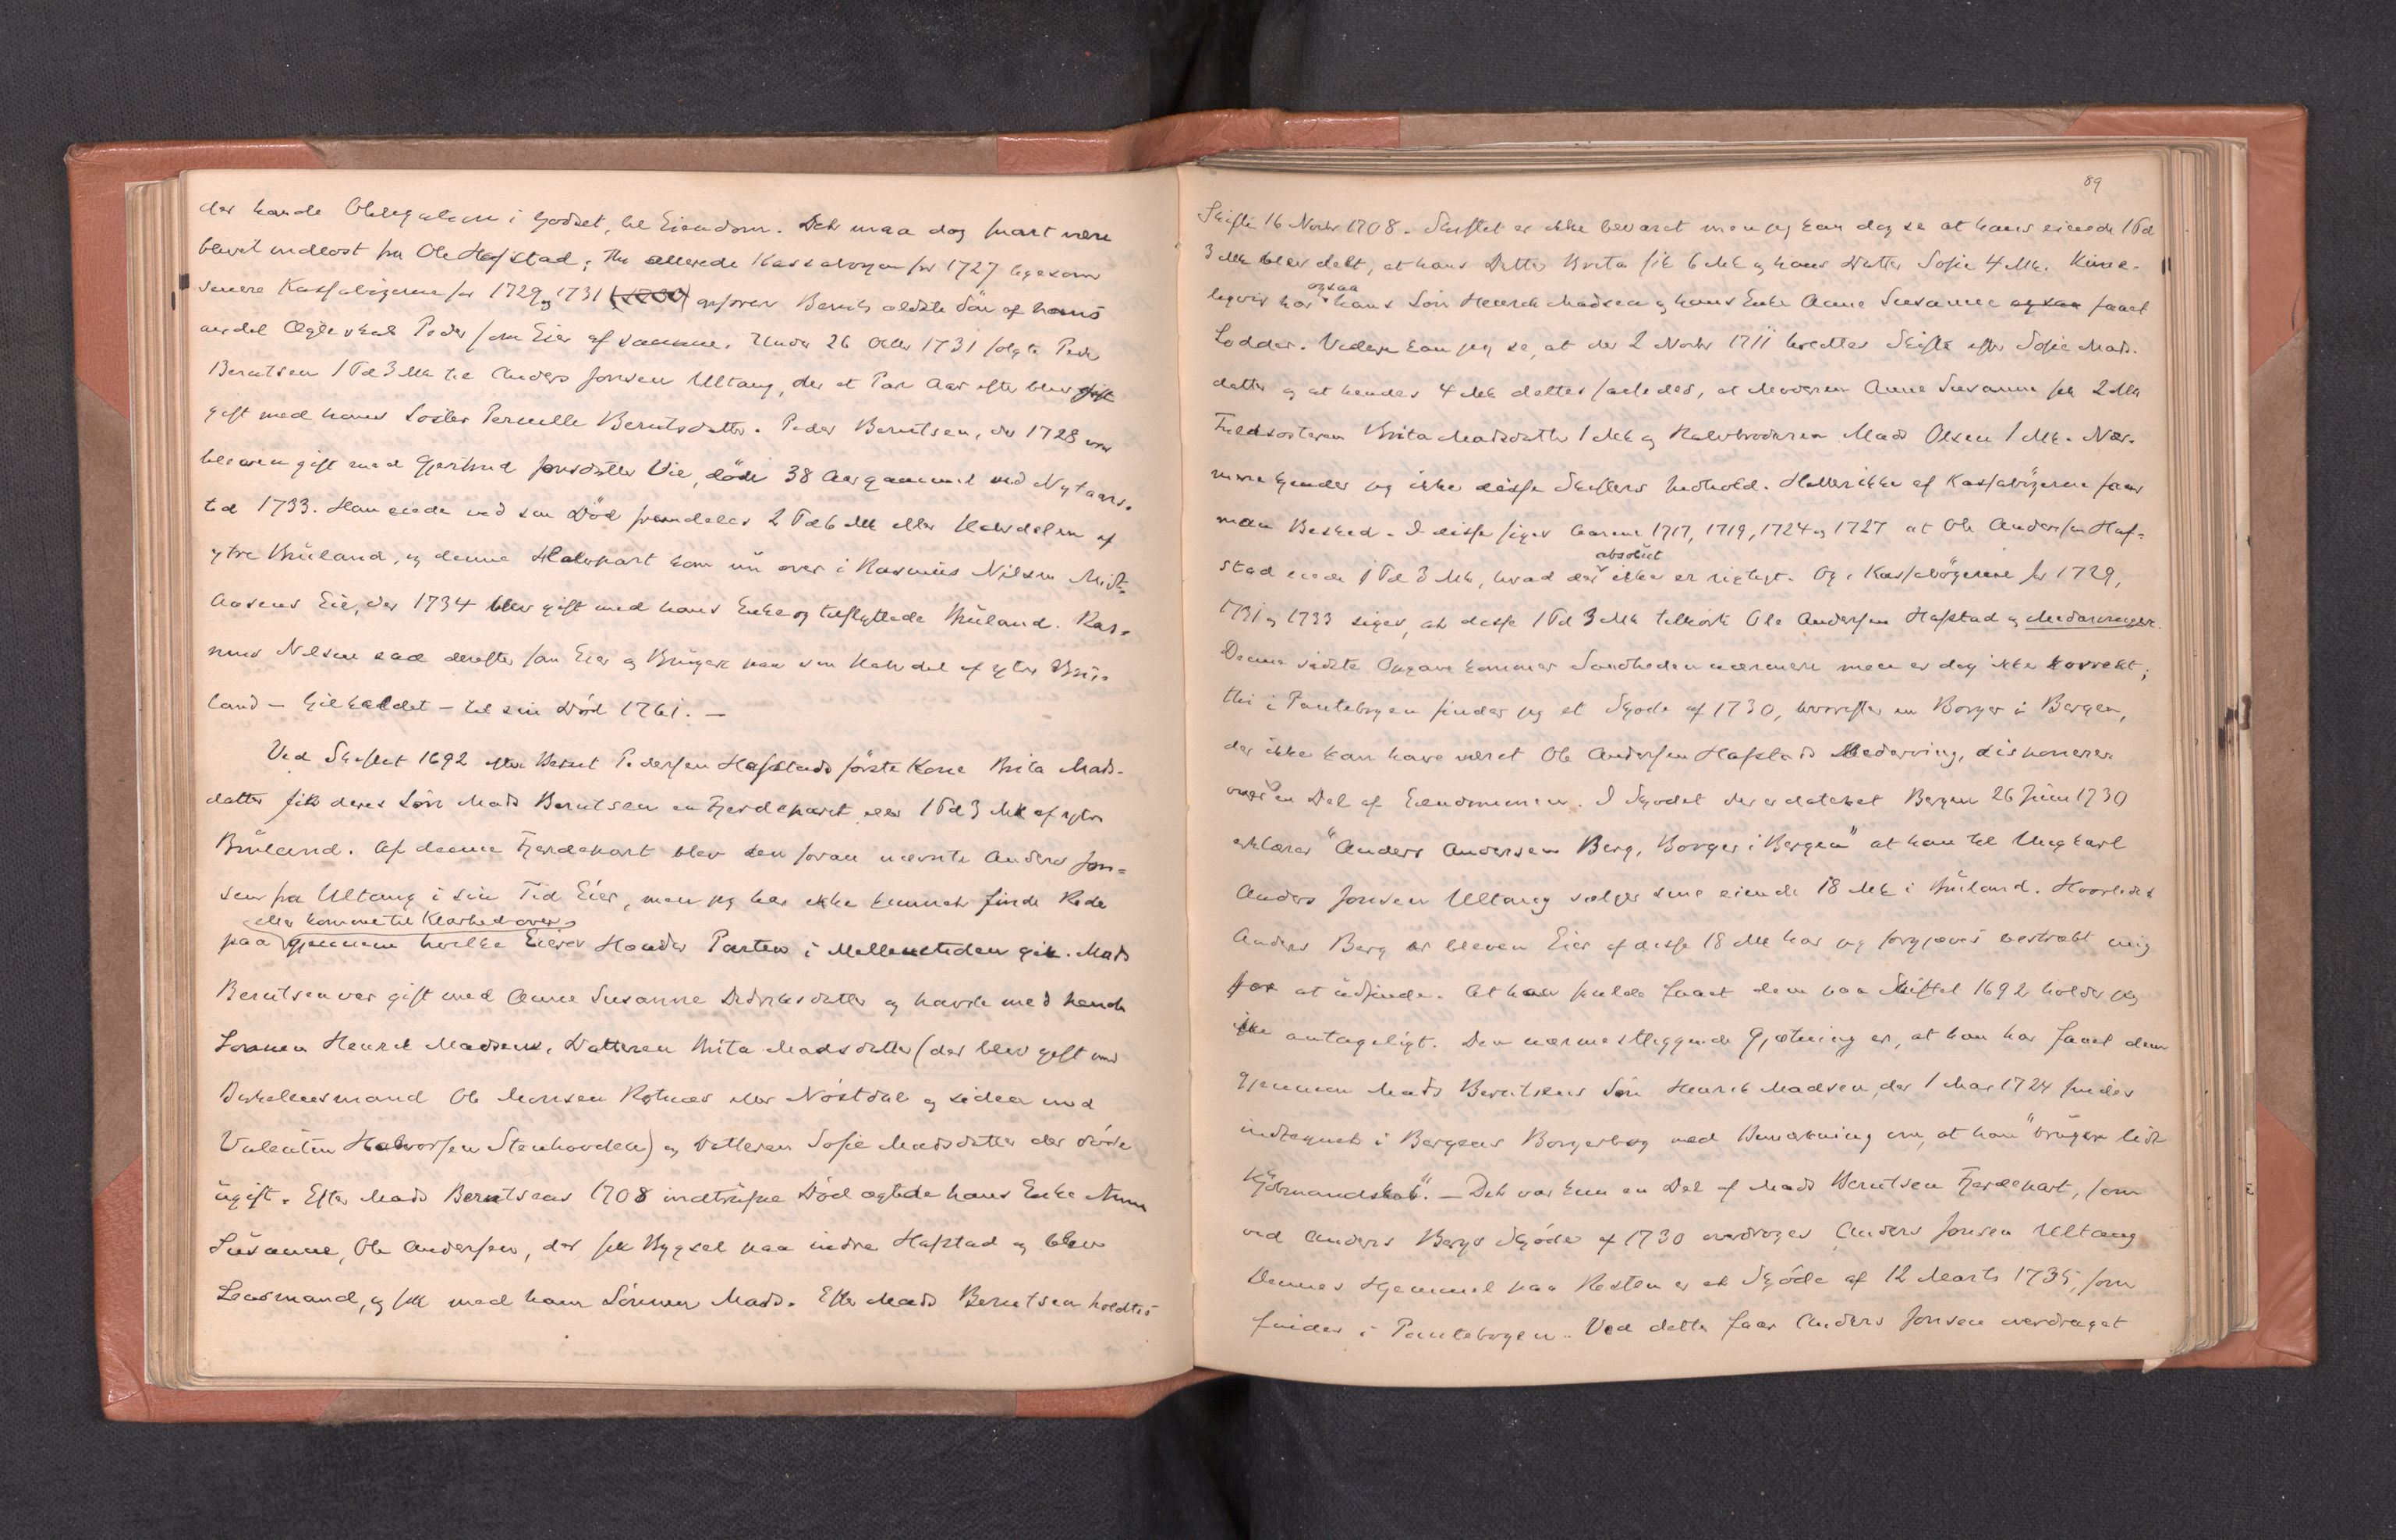 der havde Obligation i Godset, til Eiendom. Det maa dog snart være
blevet indløst fra Ole Hafstad; Thi allerede Kassabogen for 1727 ligesom
senere Kassabøgerne for 1729 og 1731 anfører Bernts ældste Søn af hans
andet Ægteskab Peder som Eier af samme. Under 26 Octbr 1731 solgte Peder
Berntsen 1 Pd 3 Mk til Anders Jonsen Ultang, der et Par Aar efter blev gift
gift med hans Søster Pernelle Berntsdatter. Peder Berntsen, der 1728 var
bleven gift med Gjertrud Jonsdatter Vie, døde 38 Aar gammel ved Nytaars-
tid 1733. Han eiede ved sin Død fremdeles 2 Pd 6 Mk eller Halvdelen af
ytre Bruland, og denne Halvpart kom nu over i Rasmus Nilsen Mjøst-
Aasens Eie, der 1734 blev gift med hans Enke og tilflyttede Bruland. Ras-
mus Nilsen sad derefter som Eier og Bruger paa sin Halvdel af ytre Bru-
land — – til sin Død 1761. —
Ved Skiftet 1692 efter Bernt Pedersen Hafstads første Kone Brita Mads-
datter fik deres Søn Mads Berntsen en Fjerdepart eller 1 Pd 3 Mk af ytre
Bruland. Af denne Fjerdepart blev den foran nævnte Anders Jon-
sen fra Ultang i sin Tid Eier, men jeg har ikke kunnet finde Rede
eller komme til Klarhed over
paa gjennem hvilke Eieres Hænder Parten i Mellemtiden gik. Mads
Berntsen var gift med Anne Susanne Didriksdatter og havde med hende
Sønnen Henrik Madsen, Datteren Brita Madsdatter (der blev gift med
Bøhelensmand Ole Monsen eller Nøstdal og siden med
Valentin Halvorsen Stenhovden) og Datteren Sofie Madsdatter der døde
ugift. Efter Mads Berntsens 1708 indtrufne Død ægtede hans Enke Anne
Susanne, Ole Andersen, der fik Bygsel paa indre Hafstad og blev
Lensmand, og fik med ham Sønnen Mads. Efter Mads Berntsen holdtes
89
Skifte 16 Novbr 1708. Skiftet er ikke bevaret men jeg kan dog se at hans eiende 1 Pd
3 Mk blev delt, at hans Datter Brita fik 6 Mk og hans Datter Sofie 4 Mk. Rime-
ogsaa
ligvis har hans Søn Henrik Madsen og hans Enke Anne Susanne ogsaa faaet
Lodder. Videre kan jeg se, at der 2 Novbr 1711 holdtes Skifte efter Sofie Mads-
datter og at hendes 4 Mk deltes saaledes, at Moderen Anne Susanne fik 2 Mk
Fuldsøsteren Brita Madsdatter 1 Mk og Halvbroderen Mads Olsen 1 Mk. Nær-
mere kjender jeg ikke disse Skifters Indhold. Heller ikke af Kassabøgerne faar
man Besked. I disse siges Aarene 1717, 1719, 1724 og 1727 at Ole Andersen Haf-
absolut
stad eiede 1 Pd 3 Mk, hvad der ikke er rigtigt. Og i Kassabøgerne for 1729,
1731 og 1733 siges, at disse 1 Pd 3 Mk tilhørte Ole Andersen Hafstad og Medarvinger.
Denne sidste Opgave kommer Sandheden nærmere men er dog ikke korrekt;
thi i Pantebogen finder jeg et Skjøde af 1730, hvorefter en Borger i Bergen,
der ikke kan have været Ole Andersen Hafstads Medarving, disponerer
over en Del af Eiendommen. I Skjødet der er dateret Bergen 26 Juni 1730
erklærer "Anders Andersen Berg, Borger i Bergen" at han til Ungkarl
Anders Jonsen Ultang sælger sine eiende 18 Mk i Bruland. Hvorledes
Anders Berg er bleven Eier af disse 18 Mk har jeg forgjæves bestræbt mig
for at udfinde. At han skulde faaet dem paa Skiftet 1692 holder jeg
ikke antageligt. Den nærmestliggende Gjætning er, at han har faaet dem
gjennem Mads Berntsens Søn Henrik Madsen, der 1 Mai 1724 findes
indtegnet i Bergens Borgerbog med Bemærkning om, at han "bruger lidt
Kjøbmandskab". — Det var kun en Del af Mads Berntsen Fjerdepart, som
ved Anders Bergs Skjøde af 1730 overdroges Anders Jonsen Ultang
Dennes Hjemmel paa Resten er et Skjøde af 12 Marts 1735, som
findes i Pantebogen. Ved dette faar Anders Jonsen overdraget